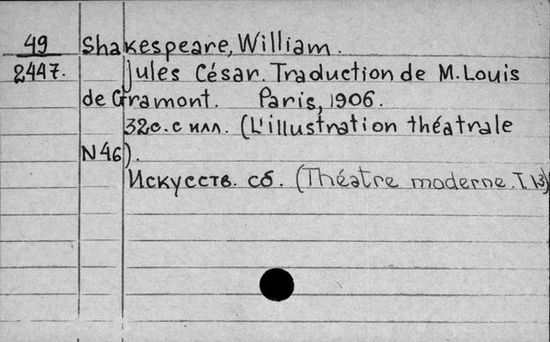 49 Shakespeare, William.
2447. Jules César. Traduction de M. Louis
de Gramont. Paris, 1906.
32с. с илл. (L'illustration théatrale
N46).
Искусств. сб. (Théatre moderne. T. 13)